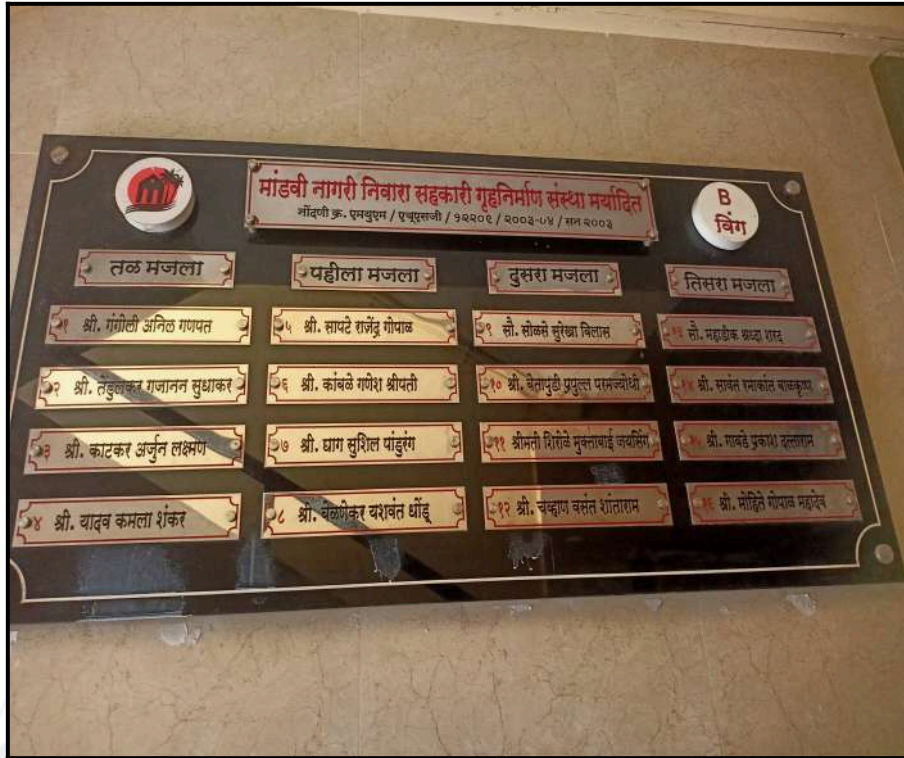 मांडवी नागरी निवारा सहकारी गृहनिर्माण संस्था मर्यादित
नोंदणी क्र. एमयुएम / एचूएसजी / १२२०९ / २००३-०४ / सन २००३
B
विंग
तळ मजला
१ श्री. गंगोली अनिल गणपत
२ श्री. तेंडुलकर गजानन सुधाकर
३ श्री. काटकर अर्जुन लक्ष्मण
४ श्री. यादव कमला शंकर
पहीला मजला
५ श्री. सापटे राजेंद्र गोपाळ
६ श्री. कांबळे गणेश श्रीपती
७ श्री. घाग सुशिल पांडुरंग
८ श्री. वेळणेकर यशवंत धोंडू
दुसरा मजला
९ सौ. सोळसे सुरेखा विलास
१० श्री. बेतापुडी प्रपुल्ल परमज्योधी
११ श्रीमती शिरोळे मुक्ताबाई जयसिंग
१२ श्री. चव्हाण वसंत शांताराम
तिसरा मजला
१३ सौ. महाडीक श्रध्दा शरद
१४ श्री. सावंत रमाकांत बाळकृष्ण
१५ श्री. गावडे प्रकाश दत्ताराम
१६ श्री. मोहिते गोपाळ महादेव